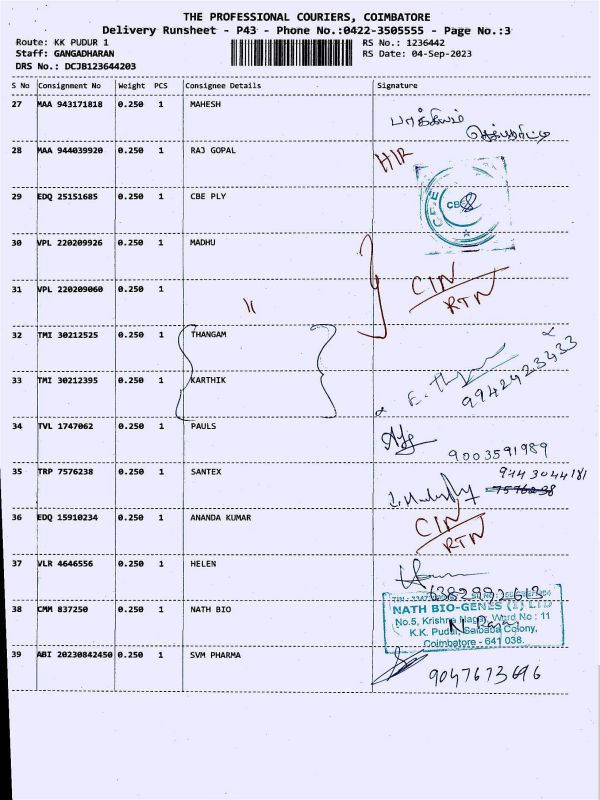 THE PROFESSIONAL COURIERS, COIMBATORE
Delivery Runsheet - P43 - Phone No.:0422-3505555 - Page No.:3
Route: KK PUDUR 1 RS No.: 1236442
Staff: GANGADHARAN RS Date: 04-Sep-2023
DRS No.: DCJB123644203
S No Consignment No Weight PCS Consignee Details Signature
27 MAA 943171818 0.250 1 MAHESH
பாக்கியம்
28 MAA 944039920 0.250 1 RAJ GOPAL H/R
29 EDQ 25151685 0.250 1 CBE PLY
30 VPL 220209926 0.250 1 MADHU
31 VPL 220209060 0.250 1 " CIN
RTN
32 TMI 30212525 0.250 1 THANGAM
33 TMI 30212395 0.250 1 KARTHIK 9942423433
34 TVL 1747062 0.250 1 PAULS 9003591989
35 TRP 7576238 0.250 1 SANTEX 9443044181
36 EDQ 15910234 0.250 1 ANANDA KUMAR CIN
RTN
37 VLR 4646556 0.250 1 HELEN
6382992613
38 CMM 837250 0.250 1 NATH BIO NATH BIO-GENES (I) LTD
No.5, Krishna Nagar, Word No : 11
K.K. Pudur, Saibaba Colony,
Coimbatore - 641 038.
39 ABI 20230842450 0.250 1 SVM PHARMA 9047673696